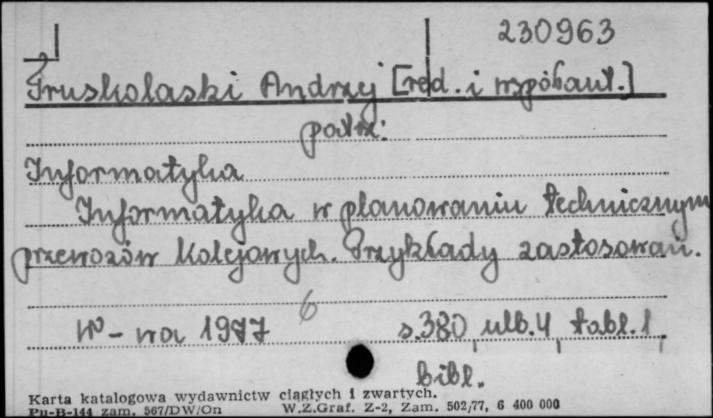 230963
Truskolaski Andrzej [red. i współaut.]
patrz:
Informatyka
Informatyka w planowaniu technicznym
przewozów kolejowych. Przykłady zastosowań.
6
W-wa 1977 s.380, ulb.4, tabl.1,
bibl.
Karta katalogowa wydawnictw ciągłych i zwartych.
Pu-B-144 zam. 567/DW/On W.Z.Graf. Z-2, Zam. 502/77, 6 400 000